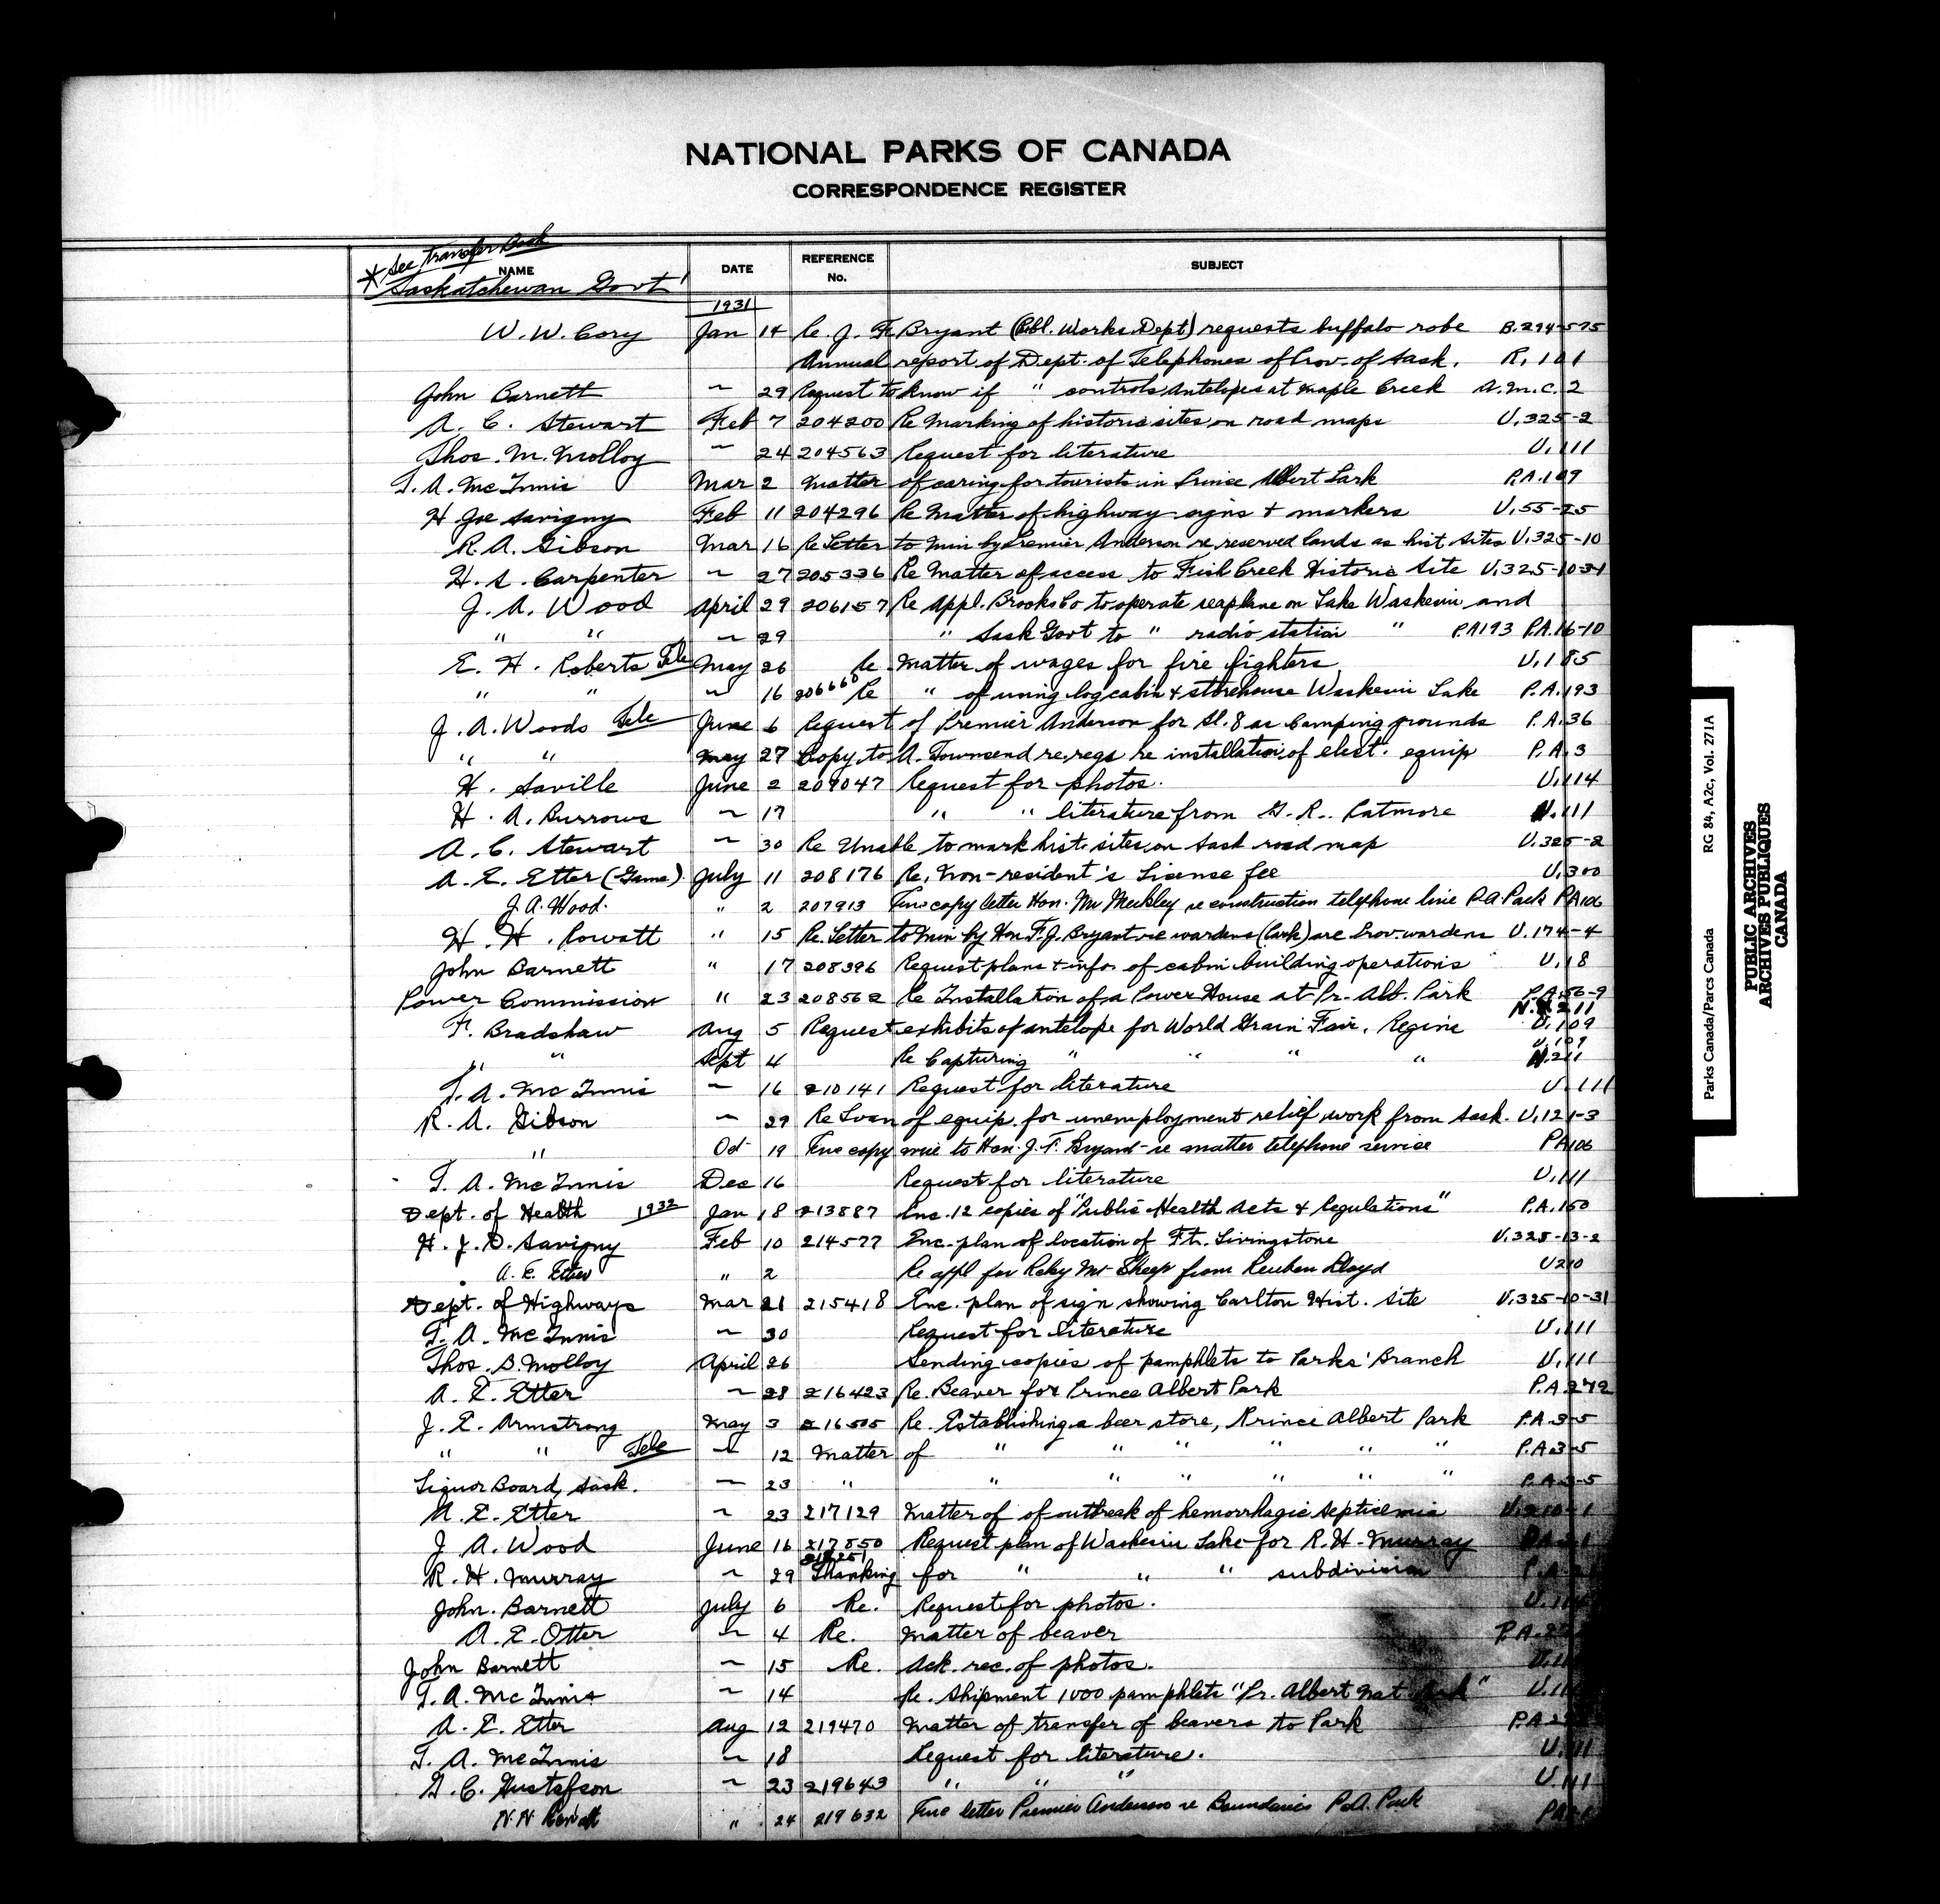 NATIONAL PARKS OF CANADA
CORRESPONDENCE REGISTER
* See Transfer Book
NAME DATE REFERENCE No. SUBJECT
Saskatchewan Govt
1931
W. W. Cory Jan 14 Re J. F. Bryant (Pbl. Works Dept) requests buffalo robe B.294-575
Annual report of Dept. of Telephones of Prov. of Sask. R. 101
John Barnett ~ 29 Request to know if " controls Antelopes at Maple Creek A.M.C. 2
A. C. Stewart Feb 7 204200 Re Marking of historic sites on road maps U.325-2
Thos. M. Molloy ~ 24 204563 Request for literature U.111
T. A. McInnis Mar 2 Matter of caring for tourists in Prince Albert Park P.A.109
H Joe Savigny Feb 11 204296 Re Matter of highway signs & markers U.55-25
R. A. Gibson Mar 16 Re Letter to Min by Premier Anderson re reserved lands as hist sites U.325-10
H. S. Carpenter ~ 27 205336 Re Matter of access to Fish Creek Historic Site U.325-10-31
J. A. Wood April 29 206157 Re Appl. Brooks Co to operate seaplane on Lake Waskesiu and
" " ~ 29 " Sask Govt to " radio station " P.A193 P.A.16-10
E. H. Roberts Tele May 26 Re Matter of wages for fire fighters U.185
" " ~ 16 206660 Re " of using log cabin & storehouse Waskesiu Lake P.A.193
J. A. Woods Tele June 6 Request of Premier Anderson for Bl. 8 as Camping grounds P.A.36
" " May 27 Copy to A. Townsend re regs re installation of elect. equip P.A.3
H. Saville June 2 207047 Request for photos. U.114
H. A. Burrows ~ 17 " " literature from G. R. Patmore U.111
A. C. Stewart ~ 30 Re Unable to mark hist. sites on Sask road map U.325-2
A. E. Etter (Game) July 11 208176 Re. Non-resident's License fee U.300
J. A. Wood. " 2 207913 Enc copy letter Hon. Mr Merkley re construction telephone line P.A. Park PA106
H. H. Rowatt " 15 Re. Letter to Min by Hon. F. J. Bryant re wardens (Park) are Prov. wardens U.174-4
John Barnett " 17 208396 Request plans & infor. of cabin building operations U.18
Power Commission " 23 208562 Re Installation of a Power House at Pr. Alb. Park P.A.56-9
F. Bradshaw Aug 5 Request exhibits of antelope for World Grain Fair, Regina N.211 U.109
" " Sept 4 Re Capturing " " " " U.109 N.211
T. A. McInnis ~ 16 210141 Request for literature U.111
R. A. Gibson ~ 29 Re Loan of equip. for unemployment relief work from Sask. U.121-3
" Oct 19 Enc copy wire to Hon. J. F. Bryant re matter telephone service PA106
T. A. McInnis Dec 16 Request for literature U.111
Dept. of Health 1932 Jan 18 213887 Enc. 12 copies of "Public Health Acts & Regulations" P.A.150
H. J. D. Savigny Feb 10 214577 Enc. plan of location of Ft. Livingstone U.325-13-2
A. E. Etter " 2 Re appl for Rcky Mt Sheep from Reuben Lloyd U210
Dept. of Highways Mar 21 215418 Enc. plan of sign showing Carlton Hist. Site U.325-10-31
T. A. McInnis ~ 30 Request for literature U.111
Thos. B. Molloy April 26 Sending copies of pamphlets to Parks' Branch U.111
A. E. Etter ~ 28 216423 Re. Beaver for Prince Albert Park P.A.272
J. E. Armstrong May 3 216505 Re. Establishing a beer store, Prince Albert Park P.A.3-5
" " Tele ~ 12 Matter of " " " " " " P.A.3-5
Liquor Board, Sask. ~ 23 " " " " " " " P.A.3-5
A. E. Etter ~ 23 217129 Matter of of outbreak of hemorrhagic septicemia U.210-1
J. A. Wood June 16 217850 Request plan of Waskesiu Lake for R. H. Murray P.A.21
R. H. Murray ~ 29 218251 Thanking for " " " subdivision P.A.
John. Barnett July 6 Re. Request for photos. U.11
A. E. Otter ~ 4 Re. Matter of beaver P.A.
John Barnett ~ 15 Re. Ack. rec. of photos. U.11
T. A. McInnis ~ 14 Re. Shipment 1000 pamphlets "Pr. Albert Nat Park" U.11
A. E. Etter Aug 12 219470 Matter of transfer of beavers to Park P.A.2
T. A. McInnis ~ 18 Request for literature. U.111
G. C. Gustafson ~ 23 219643 " " " U.111
H. H. Rowatt " 24 219632 Enc letter Premier Anderson re Boundaries P.A. Park PA
Parks Canada/Parcs Canada RG 84, A2c, Vol. 271A
PUBLIC ARCHIVES
ARCHIVES PUBLIQUES
CANADA